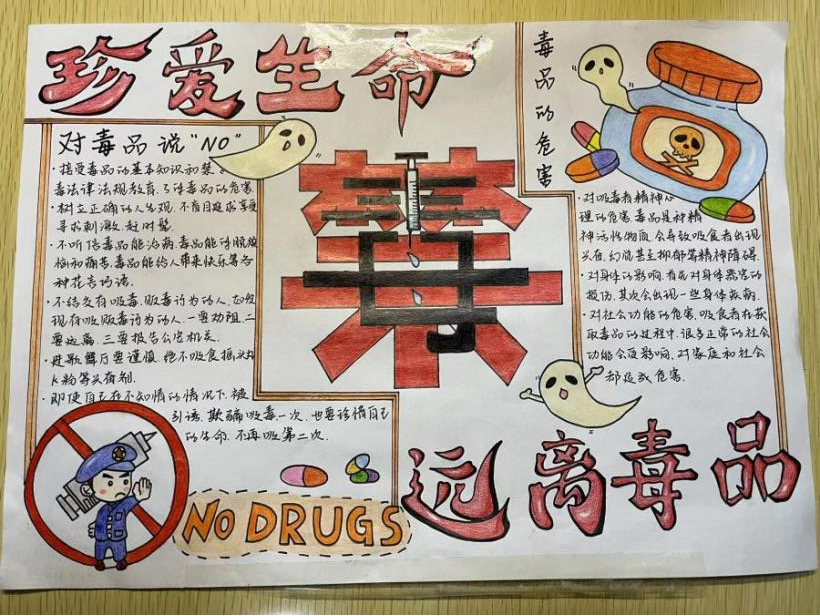 珍爱生命
对毒品说"NO"
·接受毒品的基本知识和禁
毒法律法规教育.了解毒品的危害
·树立正确的人生观.不盲目追求享受
寻求刺激.赶时髦.
·不听信毒品能治病.毒品能的脱烦
恼和痛苦.毒品能给人带来快乐等各
种花言巧语.
·不结交有吸毒.贩毒行为的人.如发
现有吸贩毒行为的人.一要劝阻.二
要远离.三要报告公安机关.
·进歌舞厅要谨慎.绝不吸食摇头丸
K粉等兴奋剂.
·即使自己在不知情的情况下.被
引诱.欺骗吸毒一次.也要珍惜自己
的生命.不再吸第二次.
毒
毒品的危害
·对吸毒者精神心
理的危害.毒品是神精
神活性物质.会导致吸食者出现
幻觉甚至抑郁等精神障碍.
·对身体的影响.首先对身体器官的
损伤.其次会出现一些身体疾病.
·对社会功能的危害.吸食者在获
取毒品的过程中.很多正常的社会
功能会受影响.对家庭和社会
都造成危害.
NO DRUGS
远离毒品